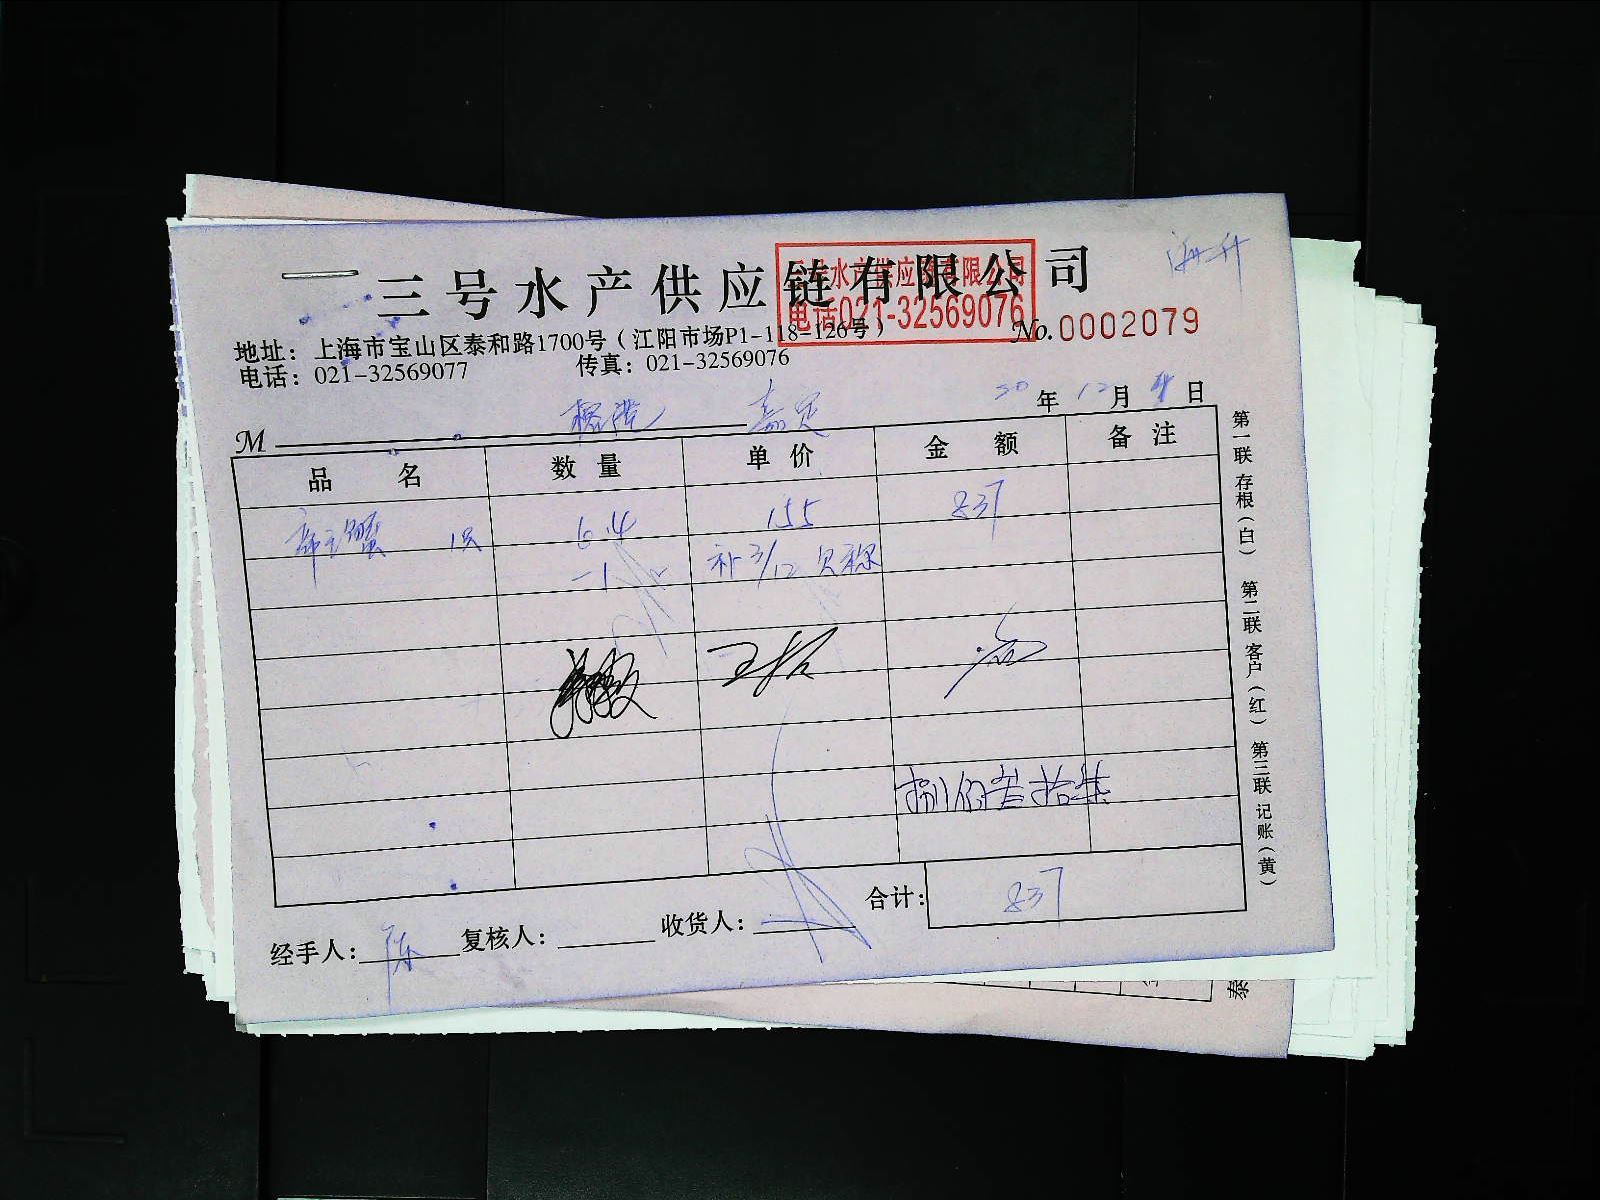 三号水产供应链有限公司
三号水产供应链有限公司
电话021-32569076
No.0002079
地址：上海市宝山区泰和路1700号（江阳市场P1-118-126号）
电话：021-32569077 传真：021-32569076
20年12月4日
M 嘉定
品名 数量 单价 金额 备注
帝王蟹 1只 6.4 155 837
-1 补3/12欠称
捌佰叁拾柒
合计：837
经手人：陈 复核人： 收货人：
第一联存根（白） 第二联客户（红） 第三联记账（黄）
泰